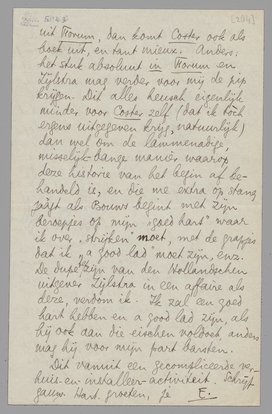 uit Forum, dan komt Coster ook als
boek uit, en tant mieux. Anders:
het stuk absoluut in Forum en
Zijlstra mag verder voor mij de pip
krijgen. Dit alles heusch eigenlijk
minder voor Coster zelf (dat ik toch
ergens uitgegeven krijg, natuurlijk)
dan wel om de lammenadige,
misselijk-bange manier waarop
deze historie van het begin af be-
handeld is, en die me extra op stang
jaagt als Bouws begint met zijn
beroepjes op mijn „goed hart" waar
ik over „strijken moet, met de grapjes
dat ik „a good lad" moet zijn, enz.
De dupe zijn van den Hollandschen
uitgever Zijlstra in een affaire als
deze, verdom ik. Ik zal een goed
hart hebben en a good lad zijn, als
hij ook aan die eischen voldoet, anders
mag hij voor mijn part barsten.
Dit vanuit een gecompliceerde ver-
huis- en inballen-activiteit. Schrijf
gauw. Hart. groeten, je E.